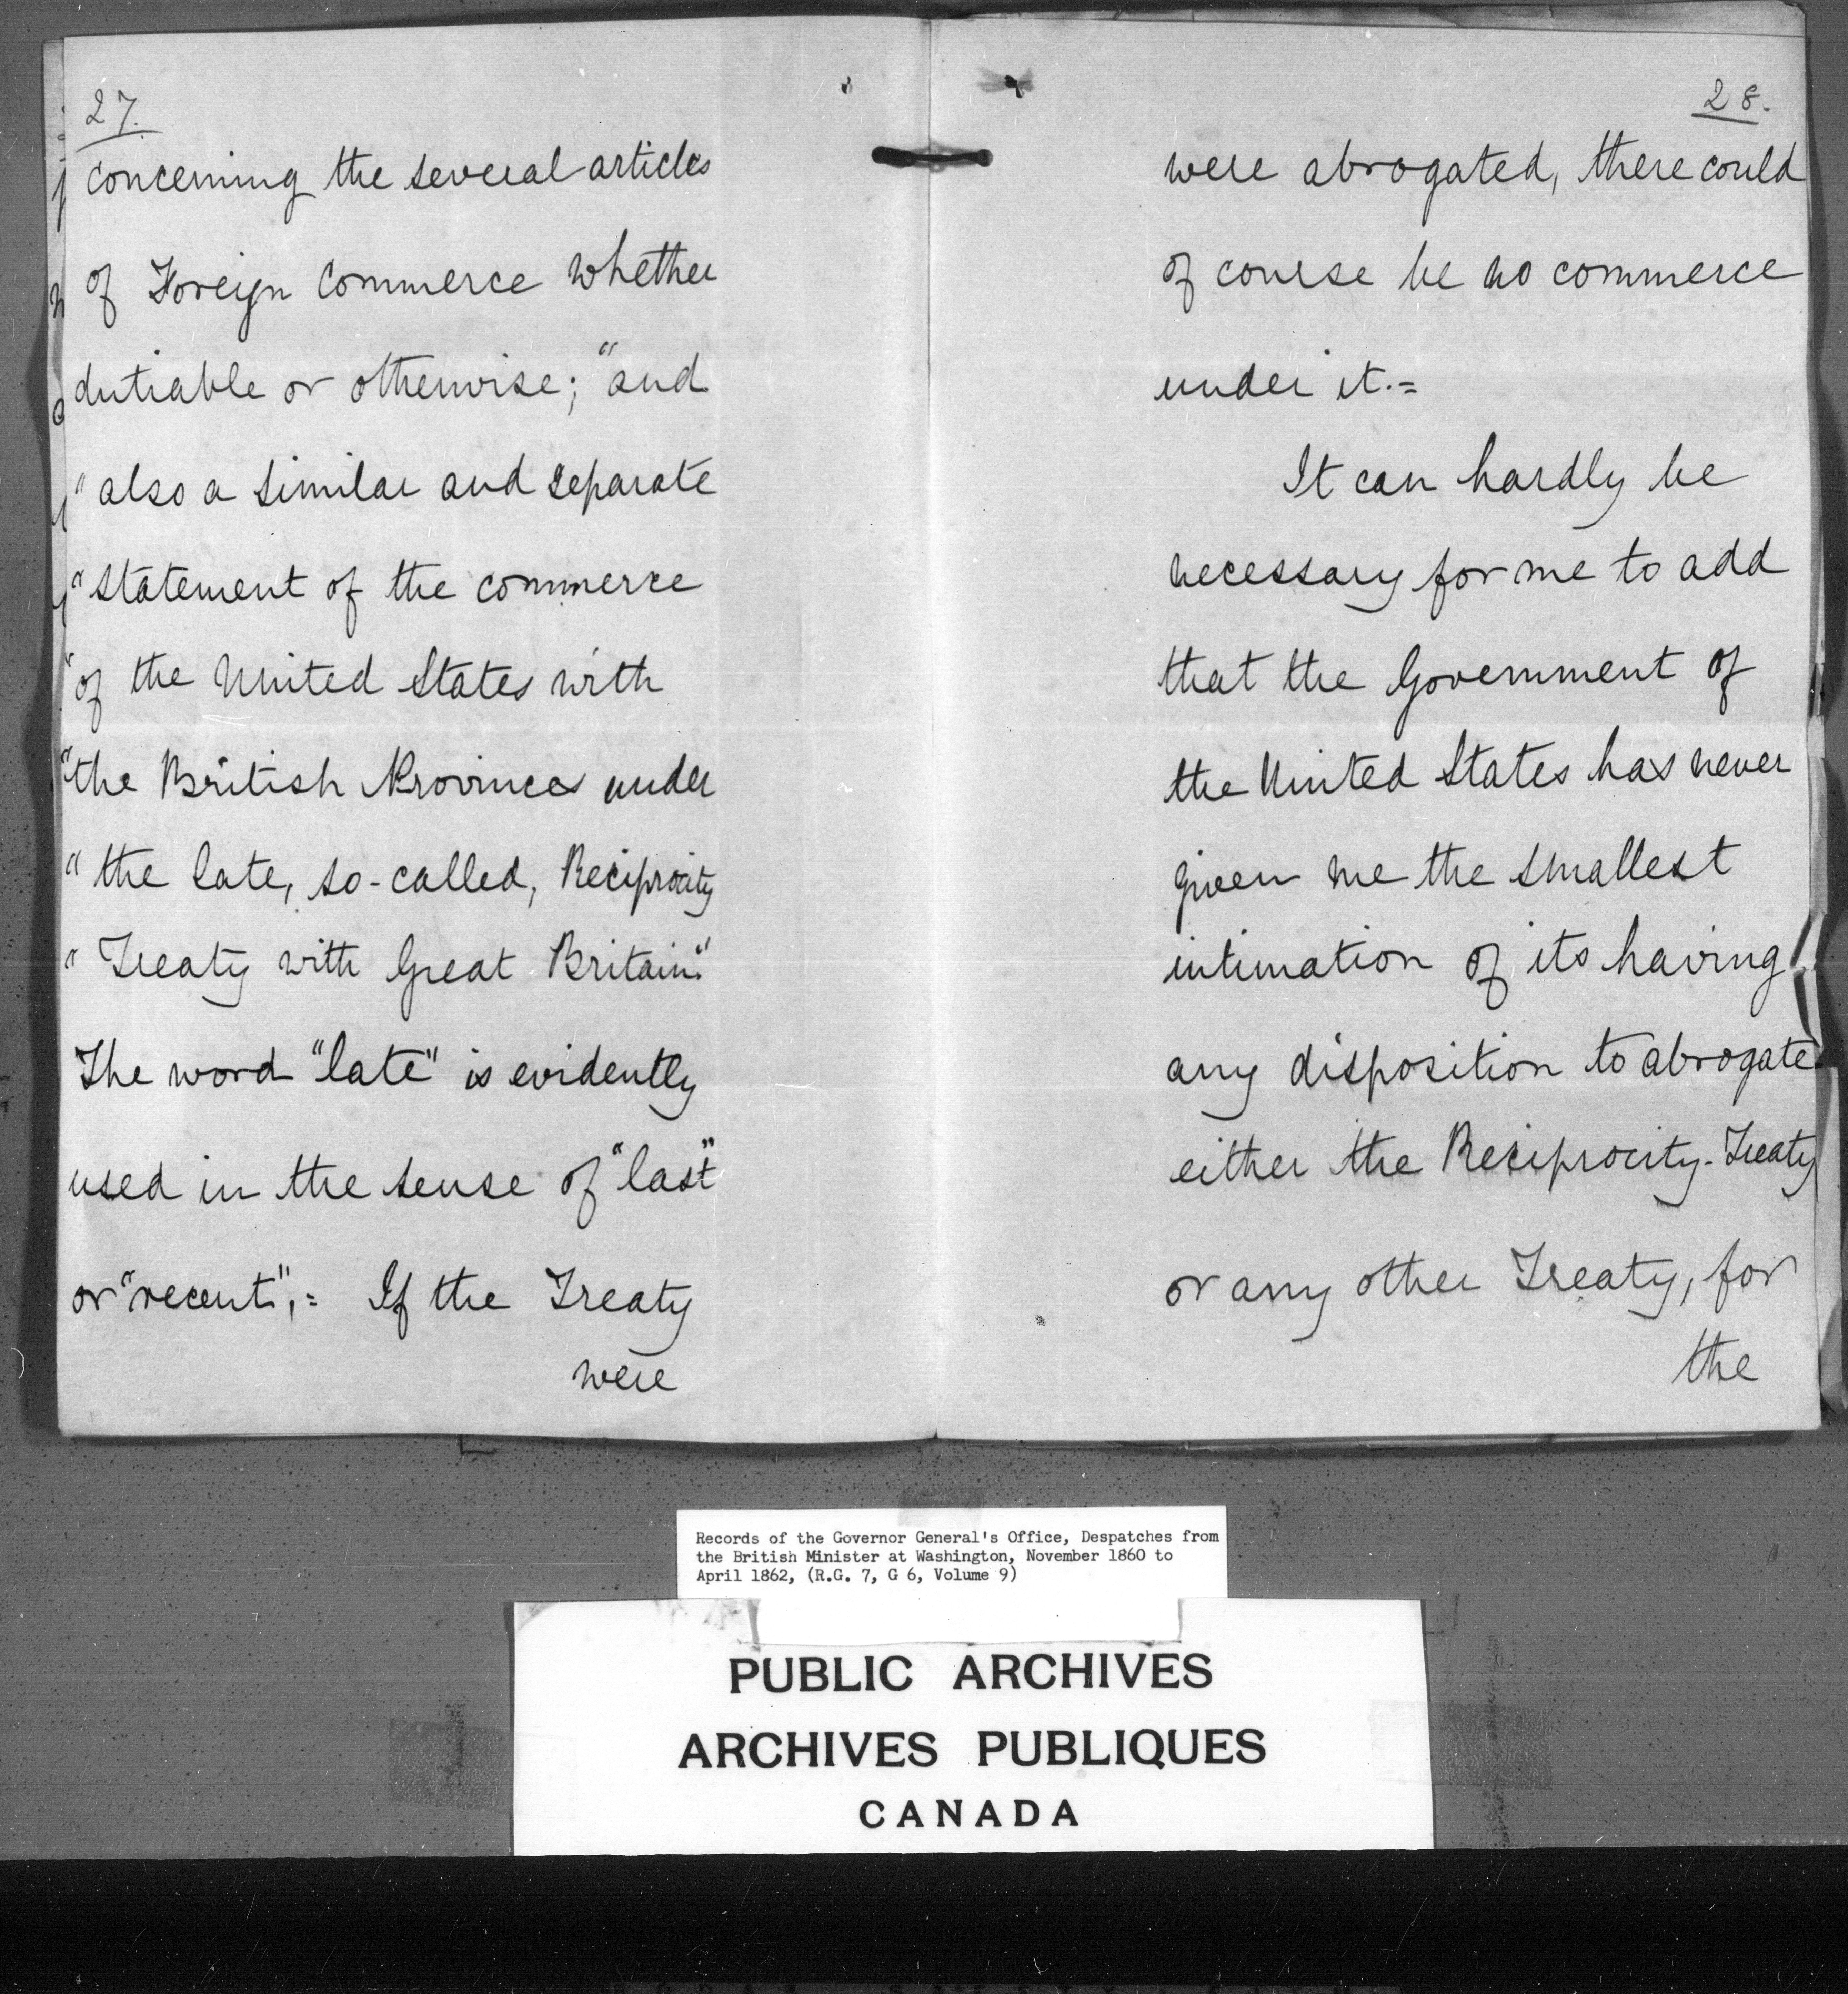 27.
concerning the several articles
of Foreign Commerce whether
dutiable or otherwise; "and
"also a similar and separate
"statement of the commerce
"of the United States with
"the British Provinces under
"the late, so-called, Reciprocity
"Treaty with Great Britain."
The word "late" is evidently
used in the sense of "last"
or "recent",= If the Treaty
were
28.
were abrogated, there could
of course be no commerce
under it.=
It can hardly be
necessary for me to add
that the Government of
the United States has never
given me the smallest
intimation of its having
any disposition to abrogate
either the Reciprocity-Treaty
or any other Treaty, for
the
Records of the Governor General's Office, Despatches from
the British Minister at Washington, November 1860 to
April 1862, (R.G. 7, G 6, Volume 9)
PUBLIC ARCHIVES
ARCHIVES PUBLIQUES
CANADA